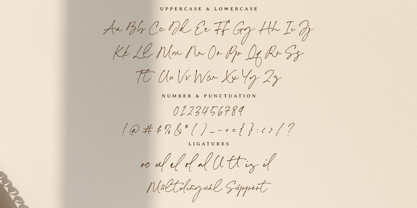 UPPERCASE & LOWERCASE
Aa Bb Cc Dd Ee Ff Gg Hh Ii Jj
Kk Ll Mm Nn Oo Pp Qq Rr Ss
Tt Uu Vv Ww Xx Yy Zz
NUMBER & PUNCTUATION
0123456789
(@#$%&*()_-+={}:;<>/?
LIGATURES
oo ul el ol al ll tt is il
Multilingual Support